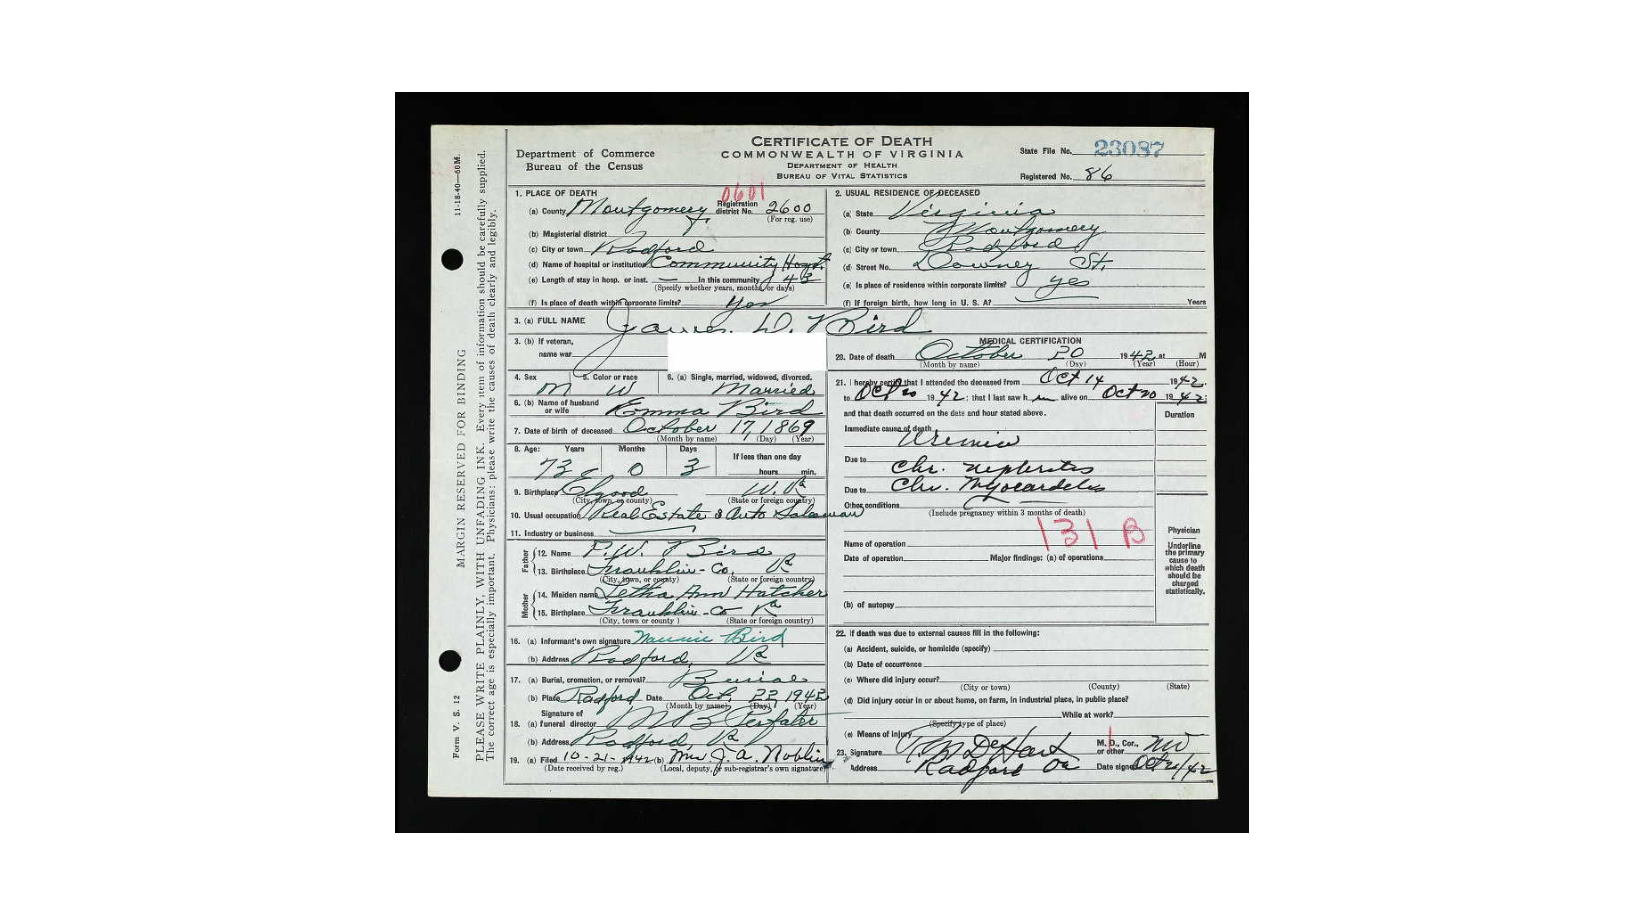 CERTIFICATE OF DEATH
COMMONWEALTH OF VIRGINIA
DEPARTMENT OF HEALTH
BUREAU OF VITAL STATISTICS
Department of Commerce
Bureau of the Census
State File No. 23087
Registered No. 86
11-18-40—60M.
MARGIN RESERVED FOR BINDING
Form V. S. 12
PLEASE WRITE PLAINLY, WITH UNFADING INK. Every item of information should be carefully supplied.
The correct age is especially important. Physicians: please write the causes of death clearly and legibly.
1. PLACE OF DEATH
0601
(a) County Montgomery Registration district No. 2600
(For reg. use)
(b) Magisterial district
(c) City or town Radford
(d) Name of hospital or institution Community Hospt.
(e) Length of stay in hosp. or inst. — In this community 43
(Specify whether years, months, or days)
(f) Is place of death within corporate limits? Yes
2. USUAL RESIDENCE OF DECEASED
(a) State Virginia
(b) County Montgomery
(c) City or town Radford
(d) Street No. Downey St.
(e) Is place of residence within corporate limits? yes
(f) If foreign birth, how long in U. S. A.? Years
3. (a) FULL NAME James D. Bird
3. (b) If veteran,
name war
4. Sex M
5. Color or race W
6. (a) Single, married, widowed, divorced. Married
6. (b) Name of husband or wife Emma Bird
7. Date of birth of deceased October 17, 1869
(Month by name) (Day) (Year)
8. Age: Years Months Days If less than one day
73 0 3 hours min.
9. Birthplace Elgood W. Va
(City, town, or county) (State or foreign country)
10. Usual occupation Real Estate & Auto Salesman
11. Industry or business
Father
12. Name P. W. Bird
13. Birthplace Franklin - Co. Va
(City, town, or county) (State or foreign country)
Mother
14. Maiden name Letha Ann Hatcher
15. Birthplace Franklin - Co Va
(City, town or county) (State or foreign country)
16. (a) Informant's own signature Nannie Bird
(b) Address Radford, Va
17. (a) Burial, cremation, or removal? Burial
(b) Place Radford Date Oct. 22 1942
(Month by name) (Day) (Year)
18. (a) Signature of funeral director
(b) Address Radford, Va
19. (a) Filed 10-21-1942 (b) Mrs. J. A. Noblin
(Date received by reg.) (Local, deputy, or sub-registrar's own signature)
MEDICAL CERTIFICATION
20. Date of death October 20 1942 at M
(Month by name) (Day) (Year) (Hour)
21. I hereby certify that I attended the deceased from Oct 14 1942
to Oct 20 1942; that I last saw h im alive on Oct 20 1942
and that death occurred on the date and hour stated above.
Duration
Immediate cause of death Uremia
Due to Chr. nephritis
Due to Chr. Myocarditis
Other conditions
(Include pregnancy within 3 months of death)
131 B
Name of operation
Date of operation Major findings: (a) of operations
(b) of autopsy
Physician
Underline the primary cause to which death should be charged statistically.
22. If death was due to external causes fill in the following:
(a) Accident, suicide, or homicide (specify)
(b) Date of occurrence
(c) Where did injury occur?
(City or town) (County) (State)
(d) Did injury occur in or about home, on farm, in industrial place, in public place?
While at work?
(Specify type of place)
(e) Means of injury
23. Signature DeHart M. D., Cor., or other
Address Radford Va Date signed Oct 21/42